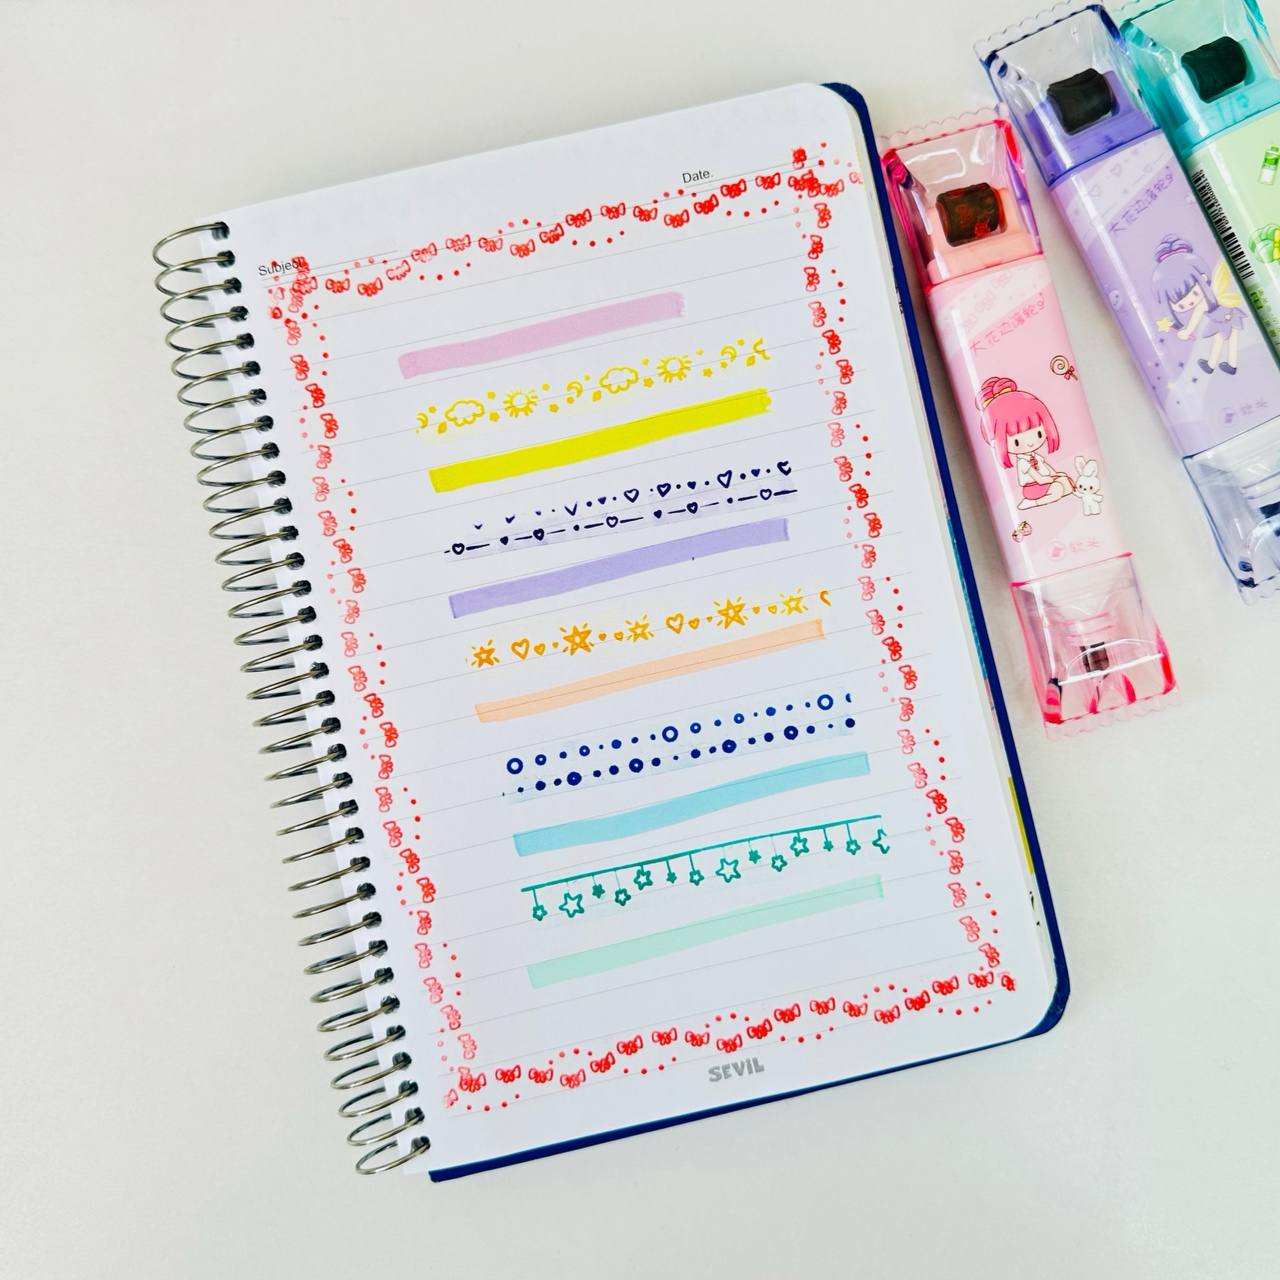 Date.
Subject
SEVIL
大花边滚轮
软头
大花边滚轮
软头